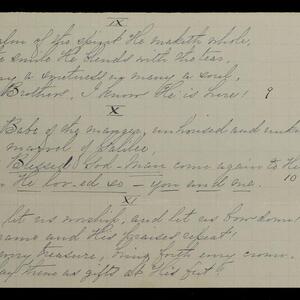 IX
of the spirit He maketh whole,
smile He blends with the tear.
a sweetness many a soul,
Brothers, I know He is here! 9
X
Babe of the manger, unhoused and
marvel of Galilee,
Blessed God-Man come again to
He lov-ed so - you and me. 10
XI
let us worship, and let us bow down
and His praises repeat!
treasure, bring forth every crown.
them as gifts at His feet!